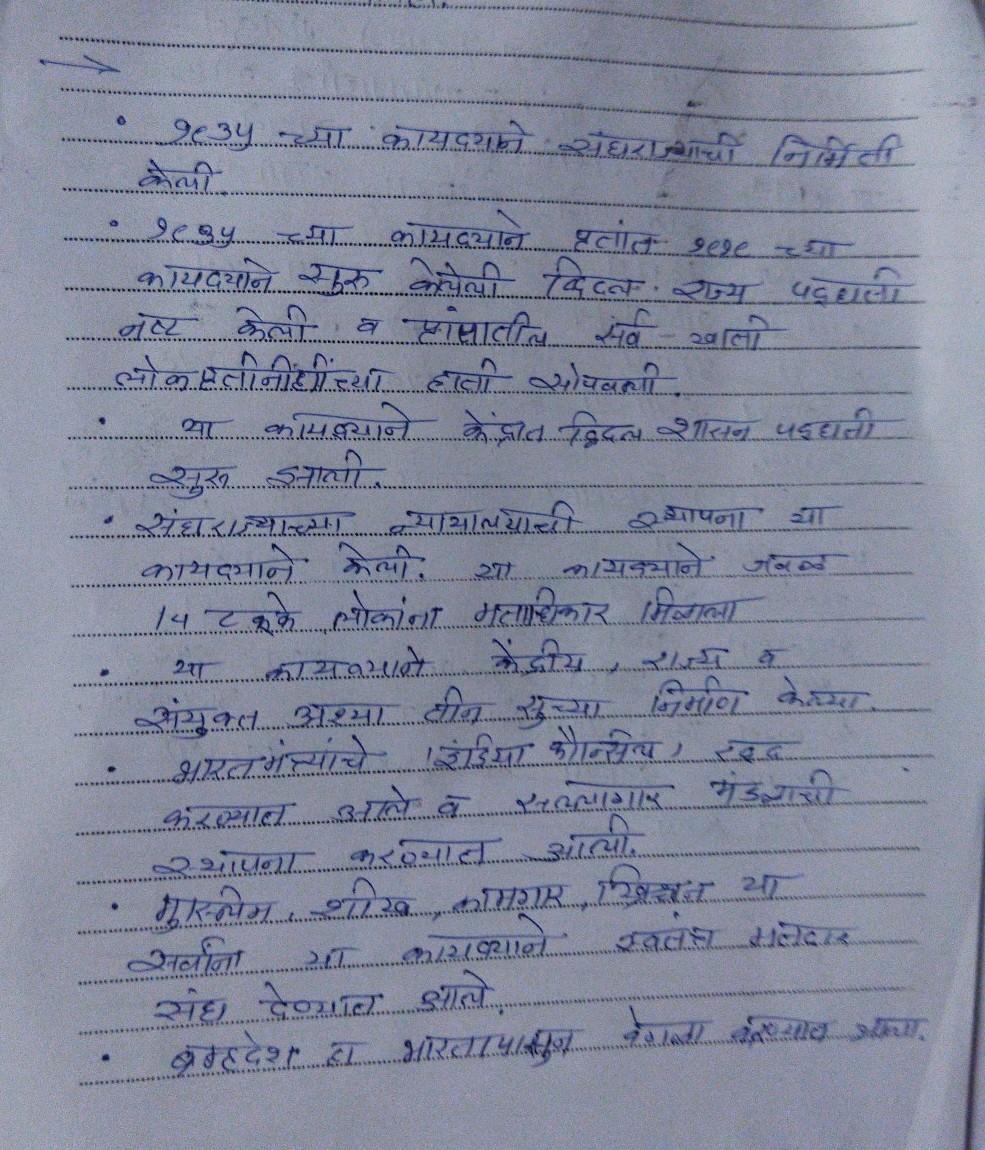 • १९३५ च्या कायद्याने संघराज्याची निर्मिती
केली.
• १९३५ च्या कायद्याने प्रतांत १९१९ च्या
कायद्याने सुरू केलेली द्विदल राज्य पद्धती
नष्ट केली व प्रांतातील सर्व खाती
लोकप्रतीनींधींच्या हाती सोपवली.
• या कायद्याने केंद्रात द्विदल शासन पद्धती
सुरू झाली.
• संघराज्याच्या न्यायालयाची स्थापना या
कायद्याने केली. या कायद्याने जवळ
14 टक्के लोकांना मताधिकार मिळाला
• या कायद्याने केंद्रीय, राज्य व
संयुक्त अश्या तीन सुच्या निर्माण केल्या.
• भारतमंत्र्यांचे 'इंडिया कौन्सील' रद्द
करण्यात आले व सल्लागार मंडळाची
स्थापना करण्यात आली.
• मुस्लीम, शीख, कामगार, ख्रिश्चन या
सर्वांना या कायद्याने स्वतंत्र मतदार
संघ देण्यात आले.
• ब्रम्हदेश हा भारतापासून वेगळा करण्यात आला.